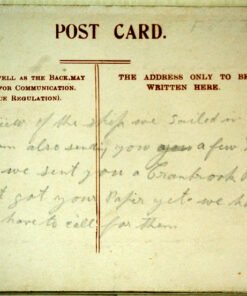 POST CARD.
ELL AS THE BACK, MAY
FOR COMMUNICATION.
CE REGULATION).
THE ADDRESS ONLY TO BE
WRITTEN HERE.
view of the ship we sailed in
am also sending you a few
we sent you a Cranbrook
t got your Papir yet we ha
have to call for them